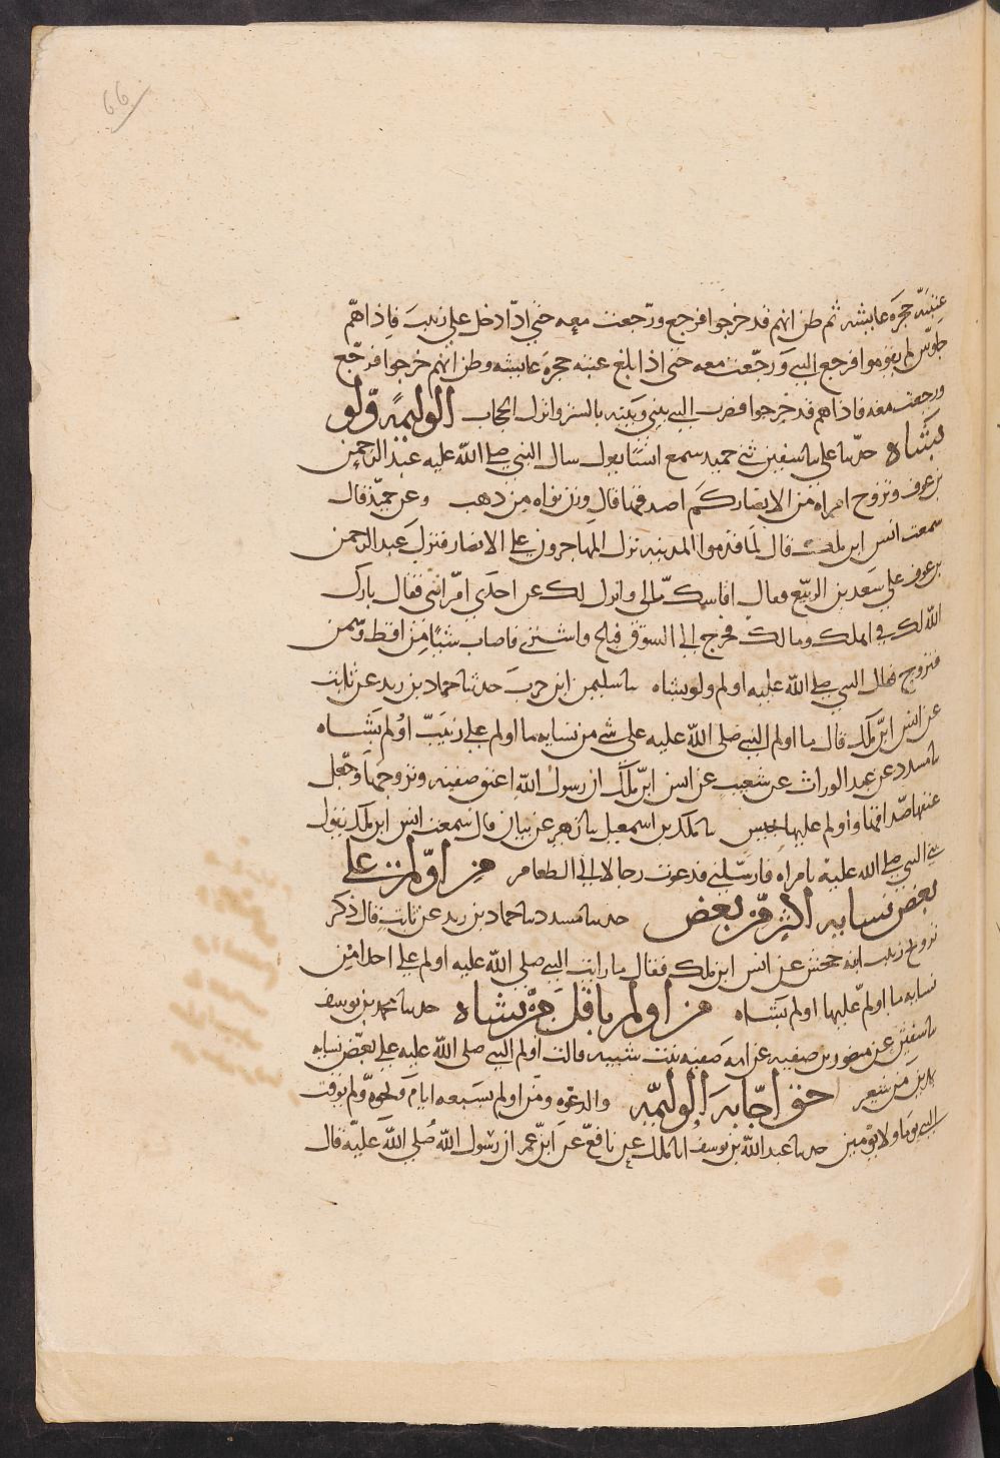 66
عتبة حجرة عايشه ثم ظن انهم قد خرجوا فرجع ورجعت معه حتي اذا دخل علي زينب فاذا هم
جلوس لم يقوموا فرجع النبي ورجعت معه حتى اذا بلغ عتبه حجرة عايشه وظن انهم خرجوا فرجع
ورجعت معه فاذا هم قد خرجوا فضرب النبي بيني وبينه بالستر وانزل الحجاب الوليمة ولو
بشاه حدثنا علي نا سفين ثني حميد سمع انسا يقول سال النبي صلى الله عليه عبد الرحمن
بن عوف وتزوج امراه من الانصار كم اصدقتها قال وزن نواه من ذهب وعن حميد قال
سمعت انس ابن ملك قال لما قدموا المدينه نزل المهاجرون علي الانصار فنزل عبد الرحمن
بن عوف علي سعد بن الربيع فقال اقاسمك مالي وانزل لك عن احدي امراتي فقال بارك
الله لك في اهلك ومالك فخرج الي السوق فباع واشتري فاصاب شيا من اقط وسمن
فتزوج فقال النبي صلى الله عليه اولم ولو بشاه نا سليمن ابن حرب حدثنا حماد بن زيد عن ثابت
عن انس ابن ملك قال ما اولم النبي صلى الله عليه على شي من نسايه ما اولم علي زينب اولم بشاه
نا مسدد عن عبد الوراث عن شعيب عن انس ابن ملك ان رسول الله اعتق صفيه وتزوجها وجعل
عتقها صداقها واولم عليها بحيس نا ملك بن اسمعيل نا زهير عن بيان قال سمعت انس ابن ملك يقول
بني النبي صلى الله عليه بامراه فارسلني فدعوت رجالا الي الطعام من اولم على
بعض نسايه اكثر من بعض حدثنا مسدد نا حماد بن زيد عن ثابت قال ذكر
تزوج زينب ابنه جحش عن انس ابن ملك فقال ما رايت النبي صلى الله عليه اولم علي احد من
نسايه ما اولم عليها اولم بشاه من اولم باقل من شاه حدثنا محمد بن يوسف
نا سفين عن منصور بن صفيه عن امه صفيه بنت شيبه قالت اولم النبي صلى الله عليه علي بعض نسايه
بمدين من شعير حق اجابه الوليمه والدعوه ومن اولم بسبعه ايام ونحوه ولم يوقت
النبي يوما ولا يومين حدثنا عبد الله بن يوسف انا ملك عن نافع عن ابن عمر ان رسول الله صلى الله عليه قال